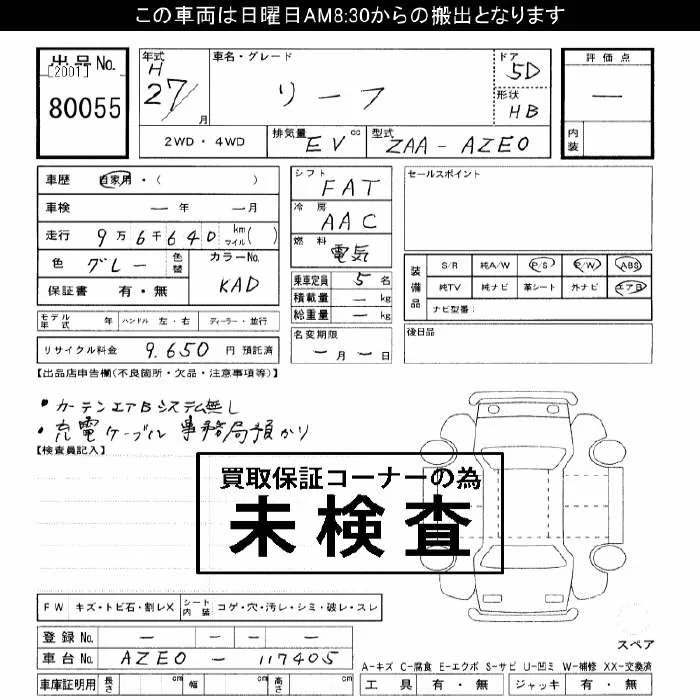 この車両は日曜日AM8:30からの搬出となります
出品No. [2001] 80055
年式 H 27/ 月
車名・グレード リーフ
ドア 5D
形状 HB
評価点 ー
内装
2WD・4WD 排気量 EV cc 型式 ZAA-AZE0
車歴 自家用・( )
車検 ー年 ー月
走行 9万6千640 km マイル( )
色 グレー 色替 カラーNo. KAD
保証書 有・無
シフト FAT
冷房 AAC
燃料 電気
乗車定員 5名
積載量 ーkg
総重量 ーkg
セールスポイント
装備品 S/R 純A/W P/S P/W ABS
純TV 純ナビ 革シート 外ナビ エアB
ナビ型番:
モデル年式 年 ハンドル 左・右 ディーラー・並行
名変期限 ー月ー日
後日品
リサイクル料金 9.650 円 預託済
【出品店申告欄(不良箇所・欠品・注意事項等)】
・カーテンエアBシステム無し
・充電ケーブル 事務局預かり
【検査員記入】
買取保証コーナーの為
未検査
FW キズ・トビ石・割レX シート内装 コゲ・穴・汚レ・シミ・破レ・スレ
登録No. ー ー ー
車台No. AZE0 - 117405
車庫証明用 長さ cm 幅 cm 高さ cm
スペア
A-キズ C-腐食 E-エクボ S-サビ U-凹ミ W-補修 XX-交換済
工具 有・無 ジャッキ 有・無